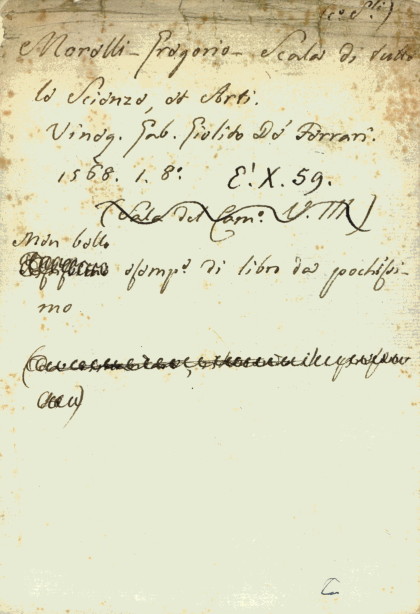 (co Sli)
Morelli - Gregorio - Scala di tutte
le Scienze, et Arti.
Vineg. Gab. Giolito De' Ferrari.
1568. 1. 8º. E'. X. 59.
(Sala del Cam.º V. III)
Non bello
esemp.e di libro da pochissi-
mo